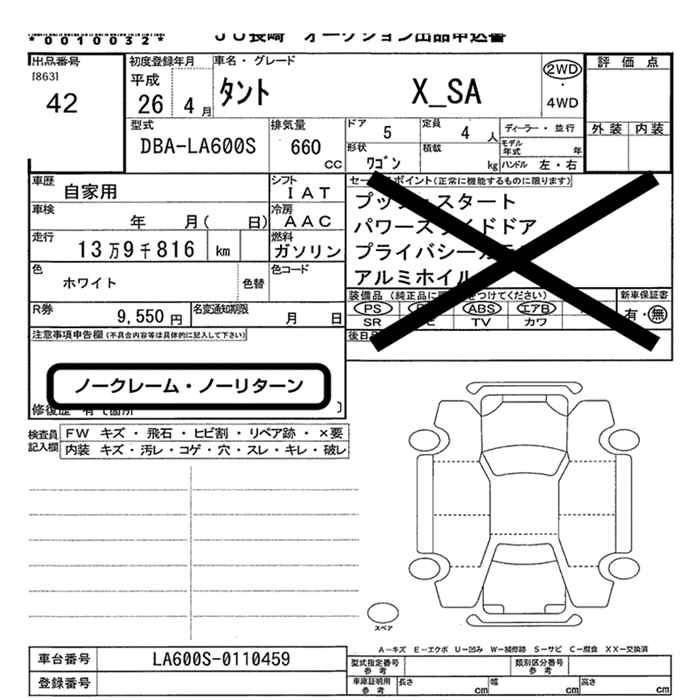 *0010032*
JU長崎 オークション出品申込書
出品番号 初度登録年月 車名・グレード 評価点
[863] 平成
42 26 4月 タント X_SA 2WD・4WD
型式 排気量 ドア 5 定員 4人 ディーラー・並行 外装 内装
DBA-LA600S 660cc 形状 ワゴン 積載 kg モデル年式 年
ハンドル 左・右
車歴 自家用 シフト IAT セールスポイント(正常に機能するものに限ります)
車検 年 月( 日) 冷房 AAC プッシュスタート
パワースライドドア
走行 13万9千816 km 燃料 ガソリン プライバシーガラス
色 ホワイト 色替 色コード アルミホイル
R券 9,550円 名変通知期限 月 日
装備品(純正品に をつけてください) 新車保証書
PS ABS エアB 有・無
SR TV カワ
注意事項申告欄(不具合内容等は具体的に記入して下さい) 後日
ノークレーム・ノーリターン
修復歴 有
検査員記入欄 FW キズ・飛石・ヒビ割・リペア跡・×要
内装 キズ・汚レ・コゲ・穴・スレ・キレ・破レ
スペア
A-キズ E-エクボ U-凹み W-補修跡 S-サビ C-腐食 XX-交換済
車台番号 LA600S-0110459 型式指定番号 参考 類別区分番号 参考
登録番号 車庫証明用 参考 長さ cm 幅 cm 高さ cm